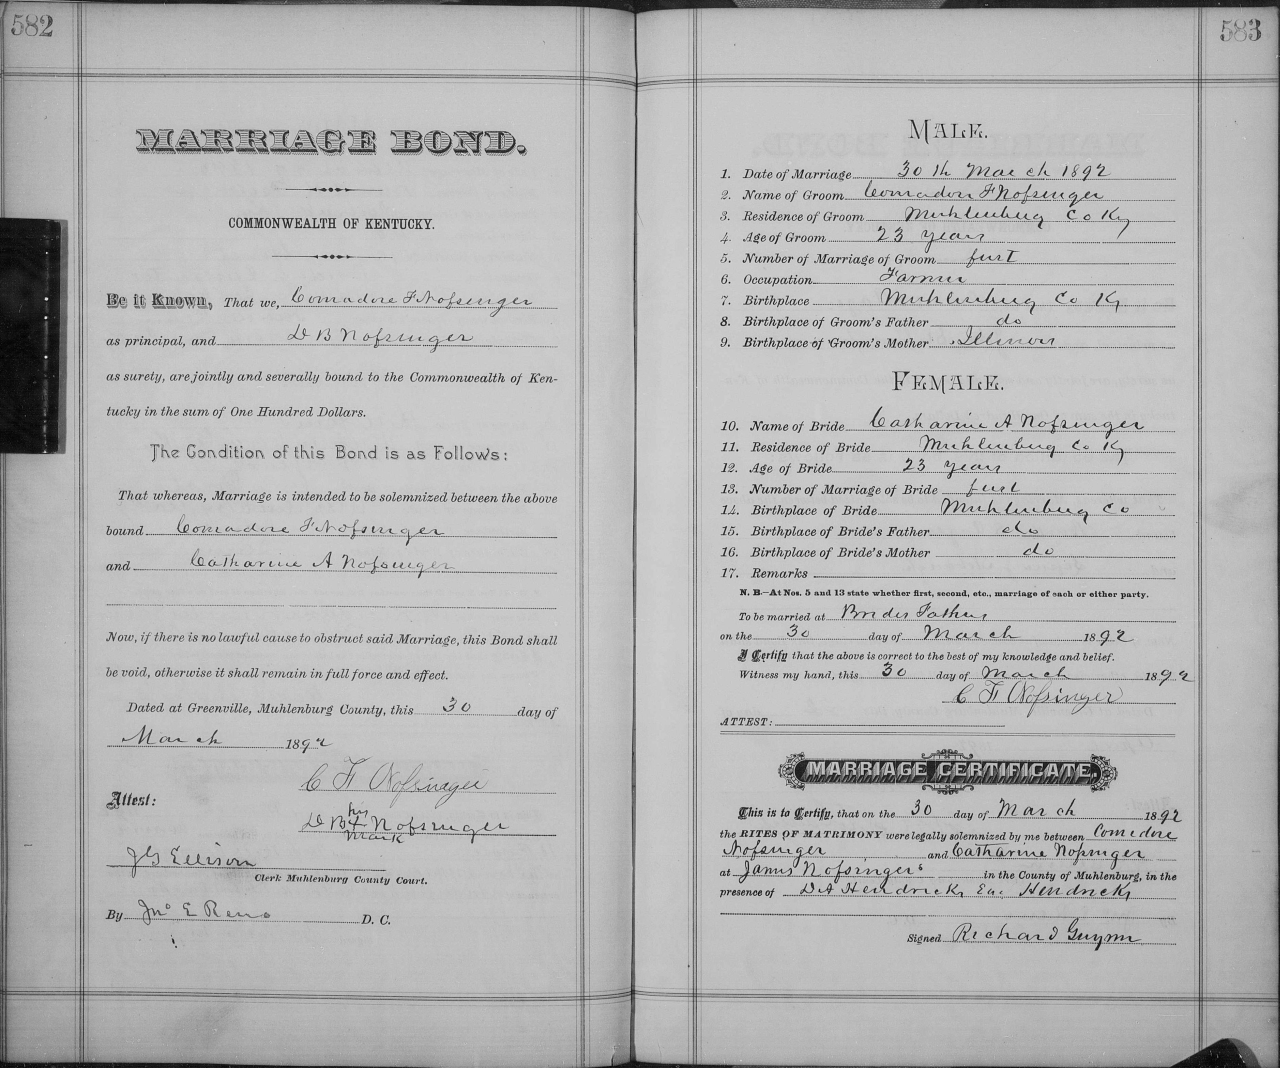 582
MARRIAGE BOND.
COMMONWEALTH OF KENTUCKY.
Be it Known, That we, Comadore F Nofsinger
as principal, and D B Nofsinger
as surety, are jointly and severally bound to the Commonwealth of Ken-
tucky in the sum of One Hundred Dollars.
The Condition of this Bond is as Follows:
That whereas, Marriage is intended to be solemnized between the above
bound Comadore F Nofsinger
and Catharine A Nofsinger
Now, if there is no lawful cause to obstruct said Marriage, this Bond shall
be void, otherwise it shall remain in full force and effect.
Dated at Greenville, Muhlenburg County, this 30 day of
March 1892
C F Nofsinger
Attest:
his
D B X Nofsinger
mark
J G Ellison
Clerk Muhlenburg County Court.
By Jno E Reno D. C.
583
MALE.
1. Date of Marriage 30th March 1892
2. Name of Groom Comadore F Nofsinger
3. Residence of Groom Muhlenburg Co Ky
4. Age of Groom 23 years
5. Number of Marriage of Groom first
6. Occupation Farmer
7. Birthplace Muhlenburg Co Ky
8. Birthplace of Groom's Father do
9. Birthplace of Groom's Mother Illinois
FEMALE.
10. Name of Bride Catharine A Nofsinger
11. Residence of Bride Muhlenburg Co Ky
12. Age of Bride 23 years
13. Number of Marriage of Bride first
14. Birthplace of Bride Muhlenburg Co
15. Birthplace of Bride's Father do
16. Birthplace of Bride's Mother do
17. Remarks
N. B.—At Nos. 5 and 13 state whether first, second, etc., marriage of each or either party.
To be married at Brides Fathers
on the 30 day of March 1892
I Certify that the above is correct to the best of my knowledge and belief.
Witness my hand, this 30 day of March 1892
C F Nofsinger
ATTEST:
MARRIAGE CERTIFICATE.
This is to Certify, that on the 30 day of March 1892
the RITES OF MATRIMONY were legally solemnized by me between Comedore
Nofsinger and Catharine Nofsinger
at James Nofsingers in the County of Muhlenburg, in the
presence of D A Hendricks Hendricks
Signed Richard Guynn